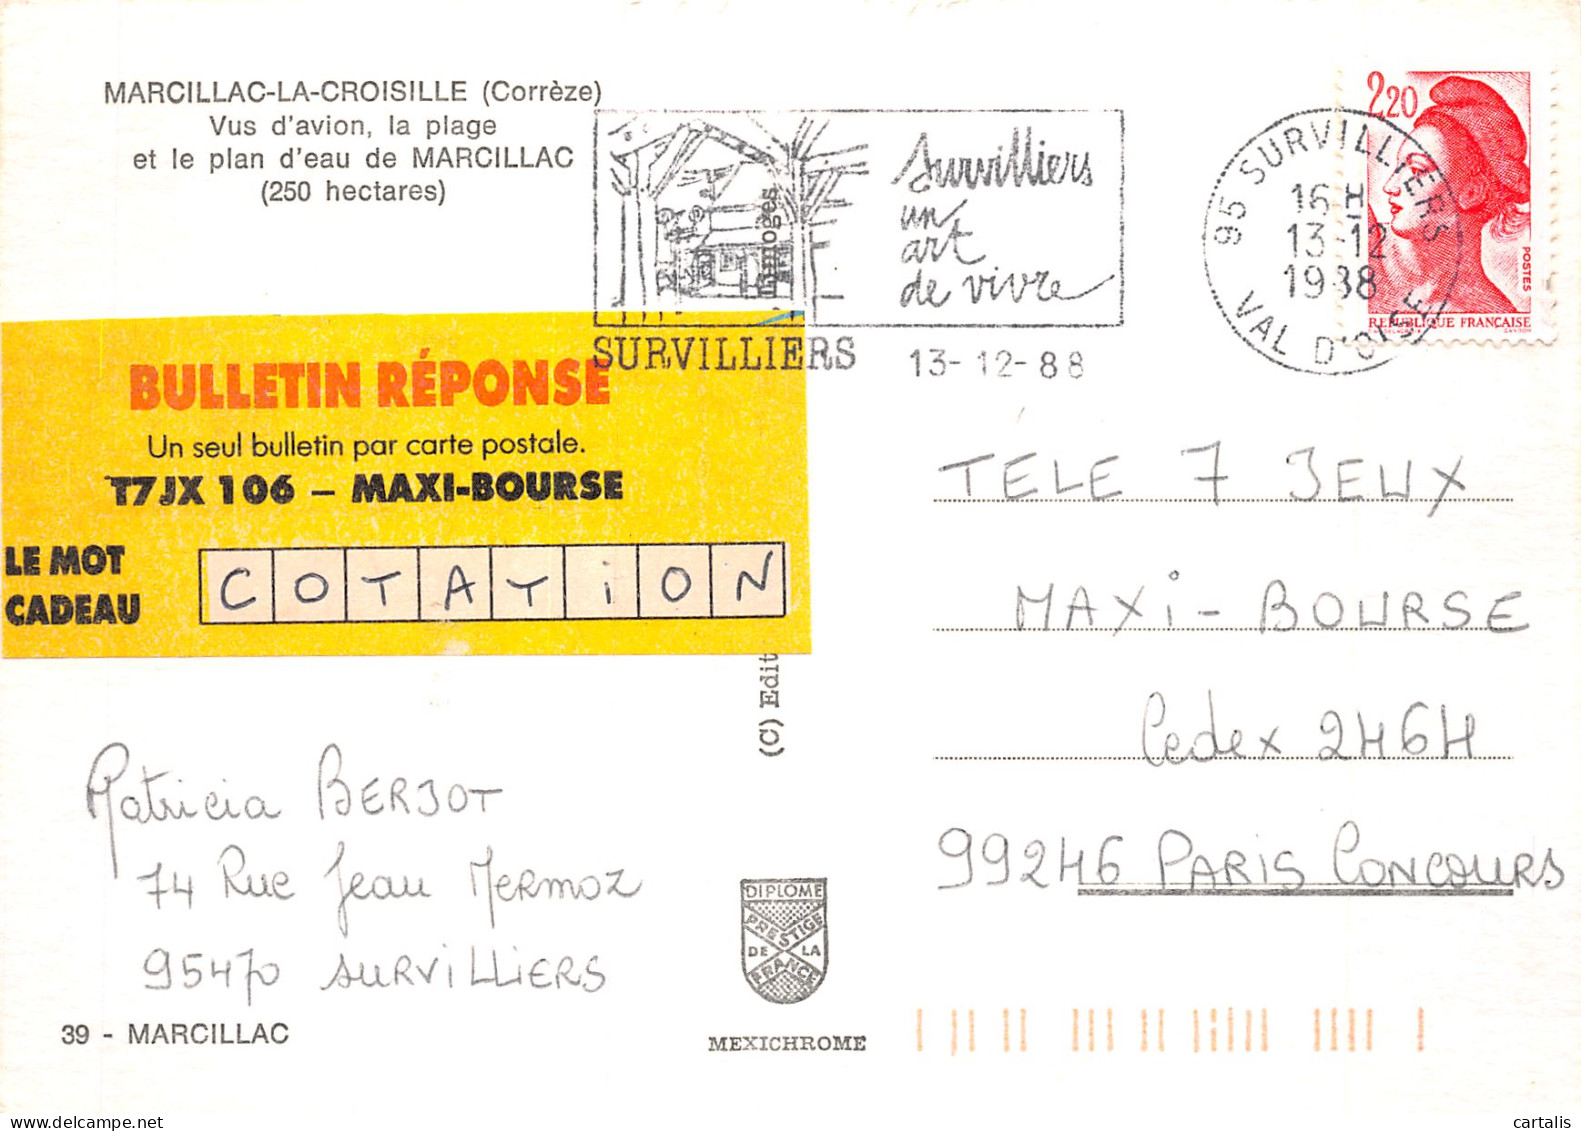 MARCILLAC-LA-CROISILLE (Corrèze)
Vus d'avion, la plage
et le plan d'eau de MARCILLAC
(250 hectares)
Limoges
Survilliers
un
art
de vivre
SURVILLIERS
13-12-88
95 SURVILLIERS
16 H
13-12
1988
VAL D'OISE
2,20
POSTES
REPUBLIQUE FRANÇAISE
BULLETIN RÉPONSE
Un seul bulletin par carte postale.
T7JX 106 – MAXI-BOURSE
LE MOT
CADEAU
COTATION
(C) Edit
TELE 7 JEUX
MAXI-BOURSE
Cedex 2464
99246 PARIS CONCOURS
Patricia BERJOT
74 Rue Jean MERMOZ
95470 SURVILLIERS
39 - MARCILLAC
DIPLOME
PRESTIGE
DE LA
FRANCE
MEXICHROME
cartalis